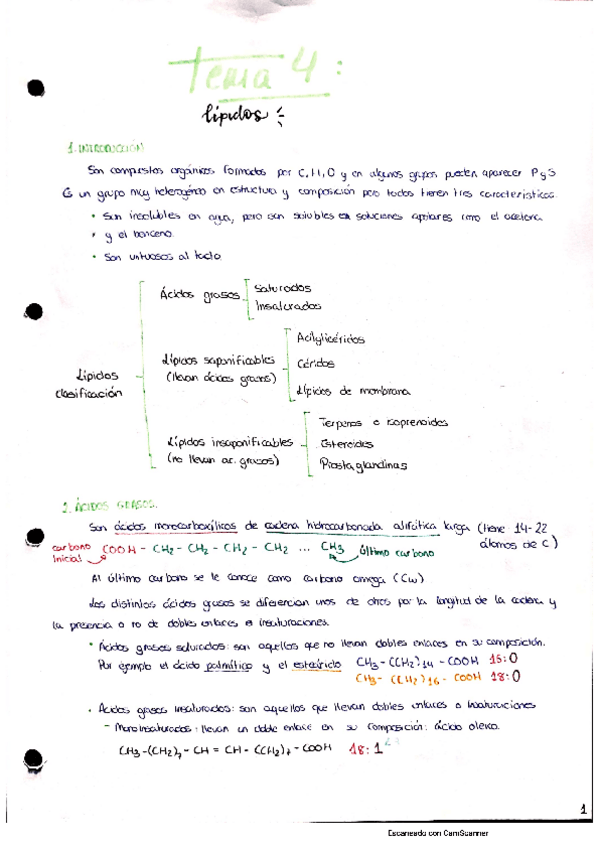 Tema 4:
lípidos
1. INTRODUCCIÓN
Son compuestos orgánicos formados por C, H, O y en algunos grupos pueden aparecer P y S
Es un grupo muy heterogéneo en estructura y composición pero todos tienen tres características.
• Son insolubles en agua, pero son solubles en soluciones apolares como el acetona
• y el benceno.
• Son untuosos al tacto
Ácidos grasos
Saturados
Insaturados
Lípidos clasificación
Lípidos saponificables
(llevan ácidos grasos)
Acilglicéridos
Céridos
Lípidos de membrana
Lípidos insaponificables
(no llevan ac. grasos)
Terpenos o isoprenoides
Esteroides
Prostaglandinas
2. ÁCIDOS GRASOS.
Son ácidos monocarboxílicos de cadena hidrocarbonada alifática larga (tiene 14-22
átomos de C)
carbono inicial COOH - CH2 - CH2 - CH2 - CH2 ... CH3 último carbono
Al último carbono se le conoce como carbono omega (Cω)
Los distintos ácidos grasos se diferencian unos de otros por la longitud de la cadena y
la presencia o no de dobles enlaces o insaturaciones.
• Ácidos grasos saturados: son aquellos que no llevan dobles enlaces en su composición.
Por ejemplo el ácido palmítico y el esteárico CH3-(CH2)14-COOH 15:0
CH3-(CH2)16-COOH 18:0
• Ácidos grasos insaturados: son aquellos que llevan dobles enlaces o insaturaciones
- Monoinsaturados: llevan un doble enlace en su composición: ácido oleico.
CH3-(CH2)7-CH = CH-(CH2)7-COOH 18:1
1
Escaneado con CamScanner